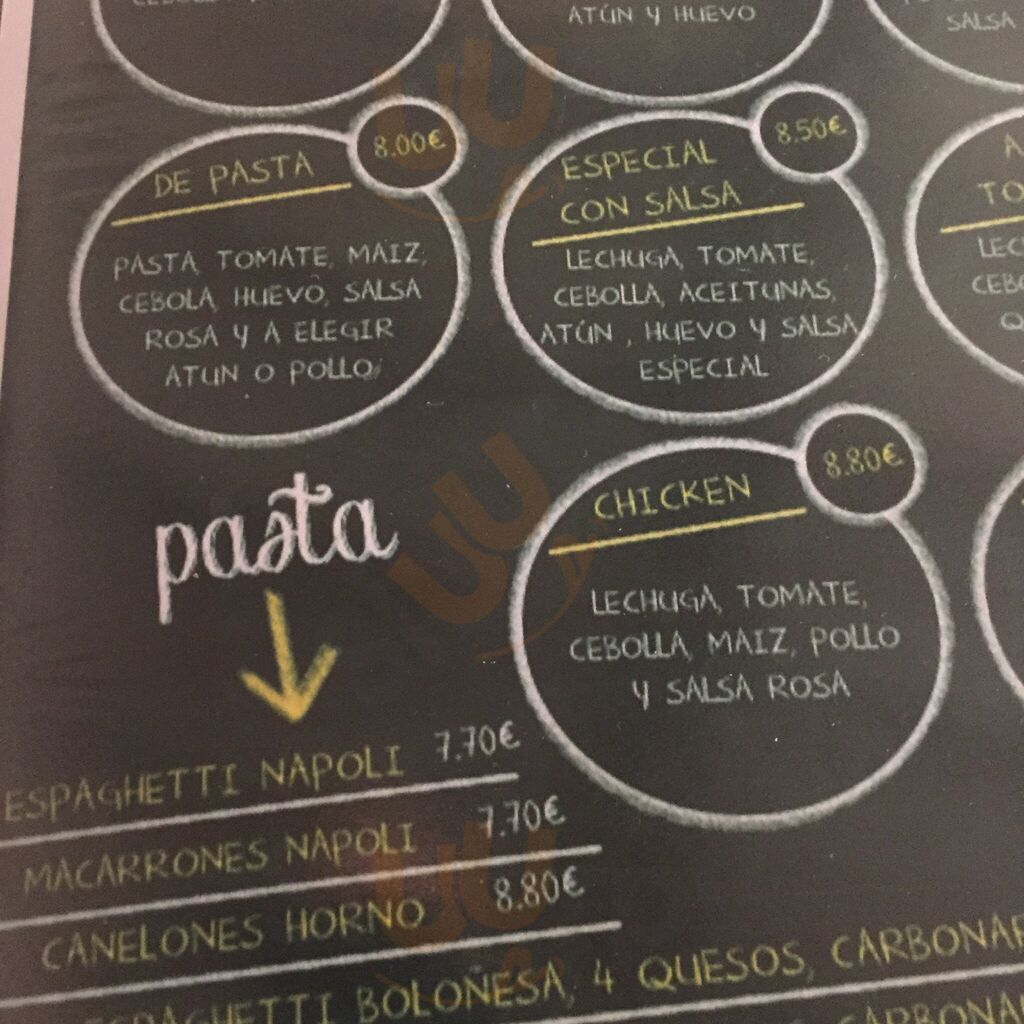 ATÚN Y HUEVO
SALSA
DE PASTA
8.00€
PASTA, TOMATE, MAIZ,
CEBOLA, HUEVO, SALSA
ROSA Y A ELEGIR
ATUN O POLLO
ESPECIAL
CON SALSA
8.50€
LECHUGA, TOMATE,
CEBOLLA, ACEITUNAS,
ATÚN , HUEVO Y SALSA
ESPECIAL
CHICKEN
8.80€
LECHUGA, TOMATE,
CEBOLLA, MAIZ, POLLO
Y SALSA ROSA
pasta
ESPAGHETTI NAPOLI 7.70€
MACARRONES NAPOLI 7.70€
CANELONES HORNO 8.80€
ESPAGHETTI BOLOÑESA, 4 QUESOS,